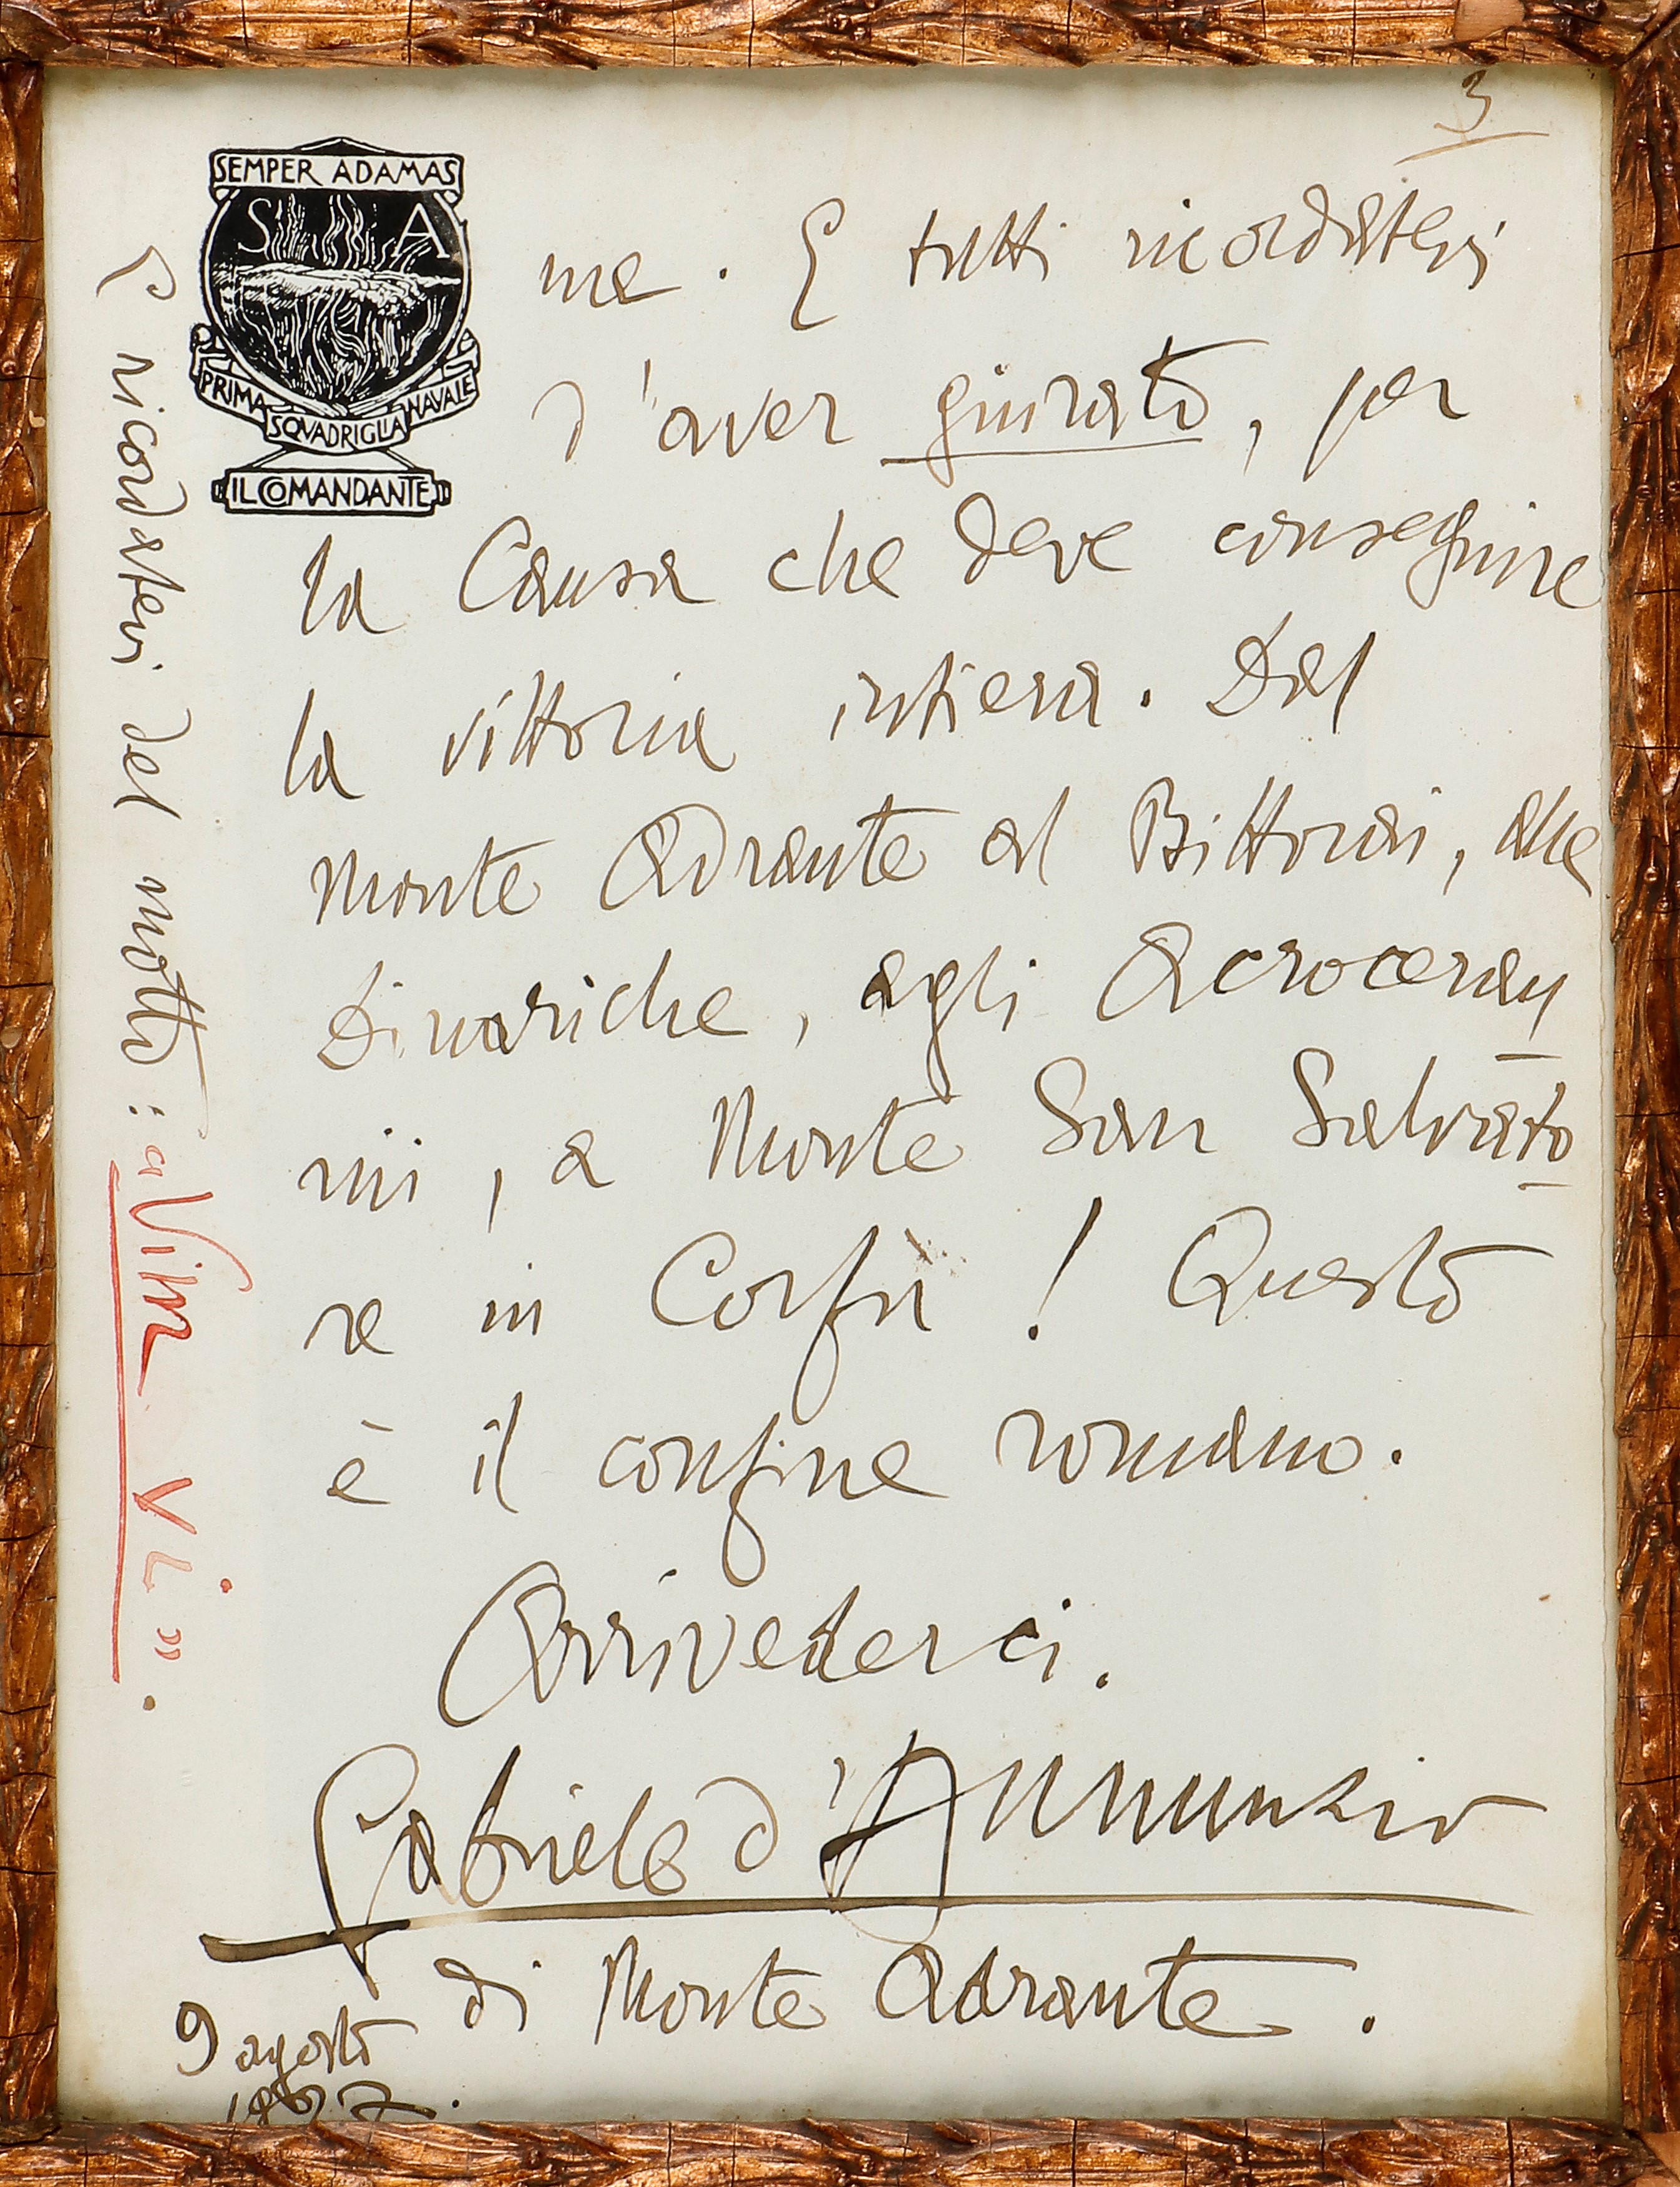 3
SEMPER ADAMAS
S A
PRIMA SQVADRIGLIA NAVALE
IL COMANDANTE
me. E tutti ricordatevi
d'aver giurato, per
la Causa che deve conseguire
la vittoria intiera. Dal
Monte Adrante al Bittorai, alle
Dinariche, agli Acrocerau
nii, a Monte San Salvato
re in Corfù! Questo
è il confine romano.
Arrivederci.
Gabriele d'Annunzio
di Monte Adrante.
9 agosto
E ricordatevi del motto: "Vim vi".